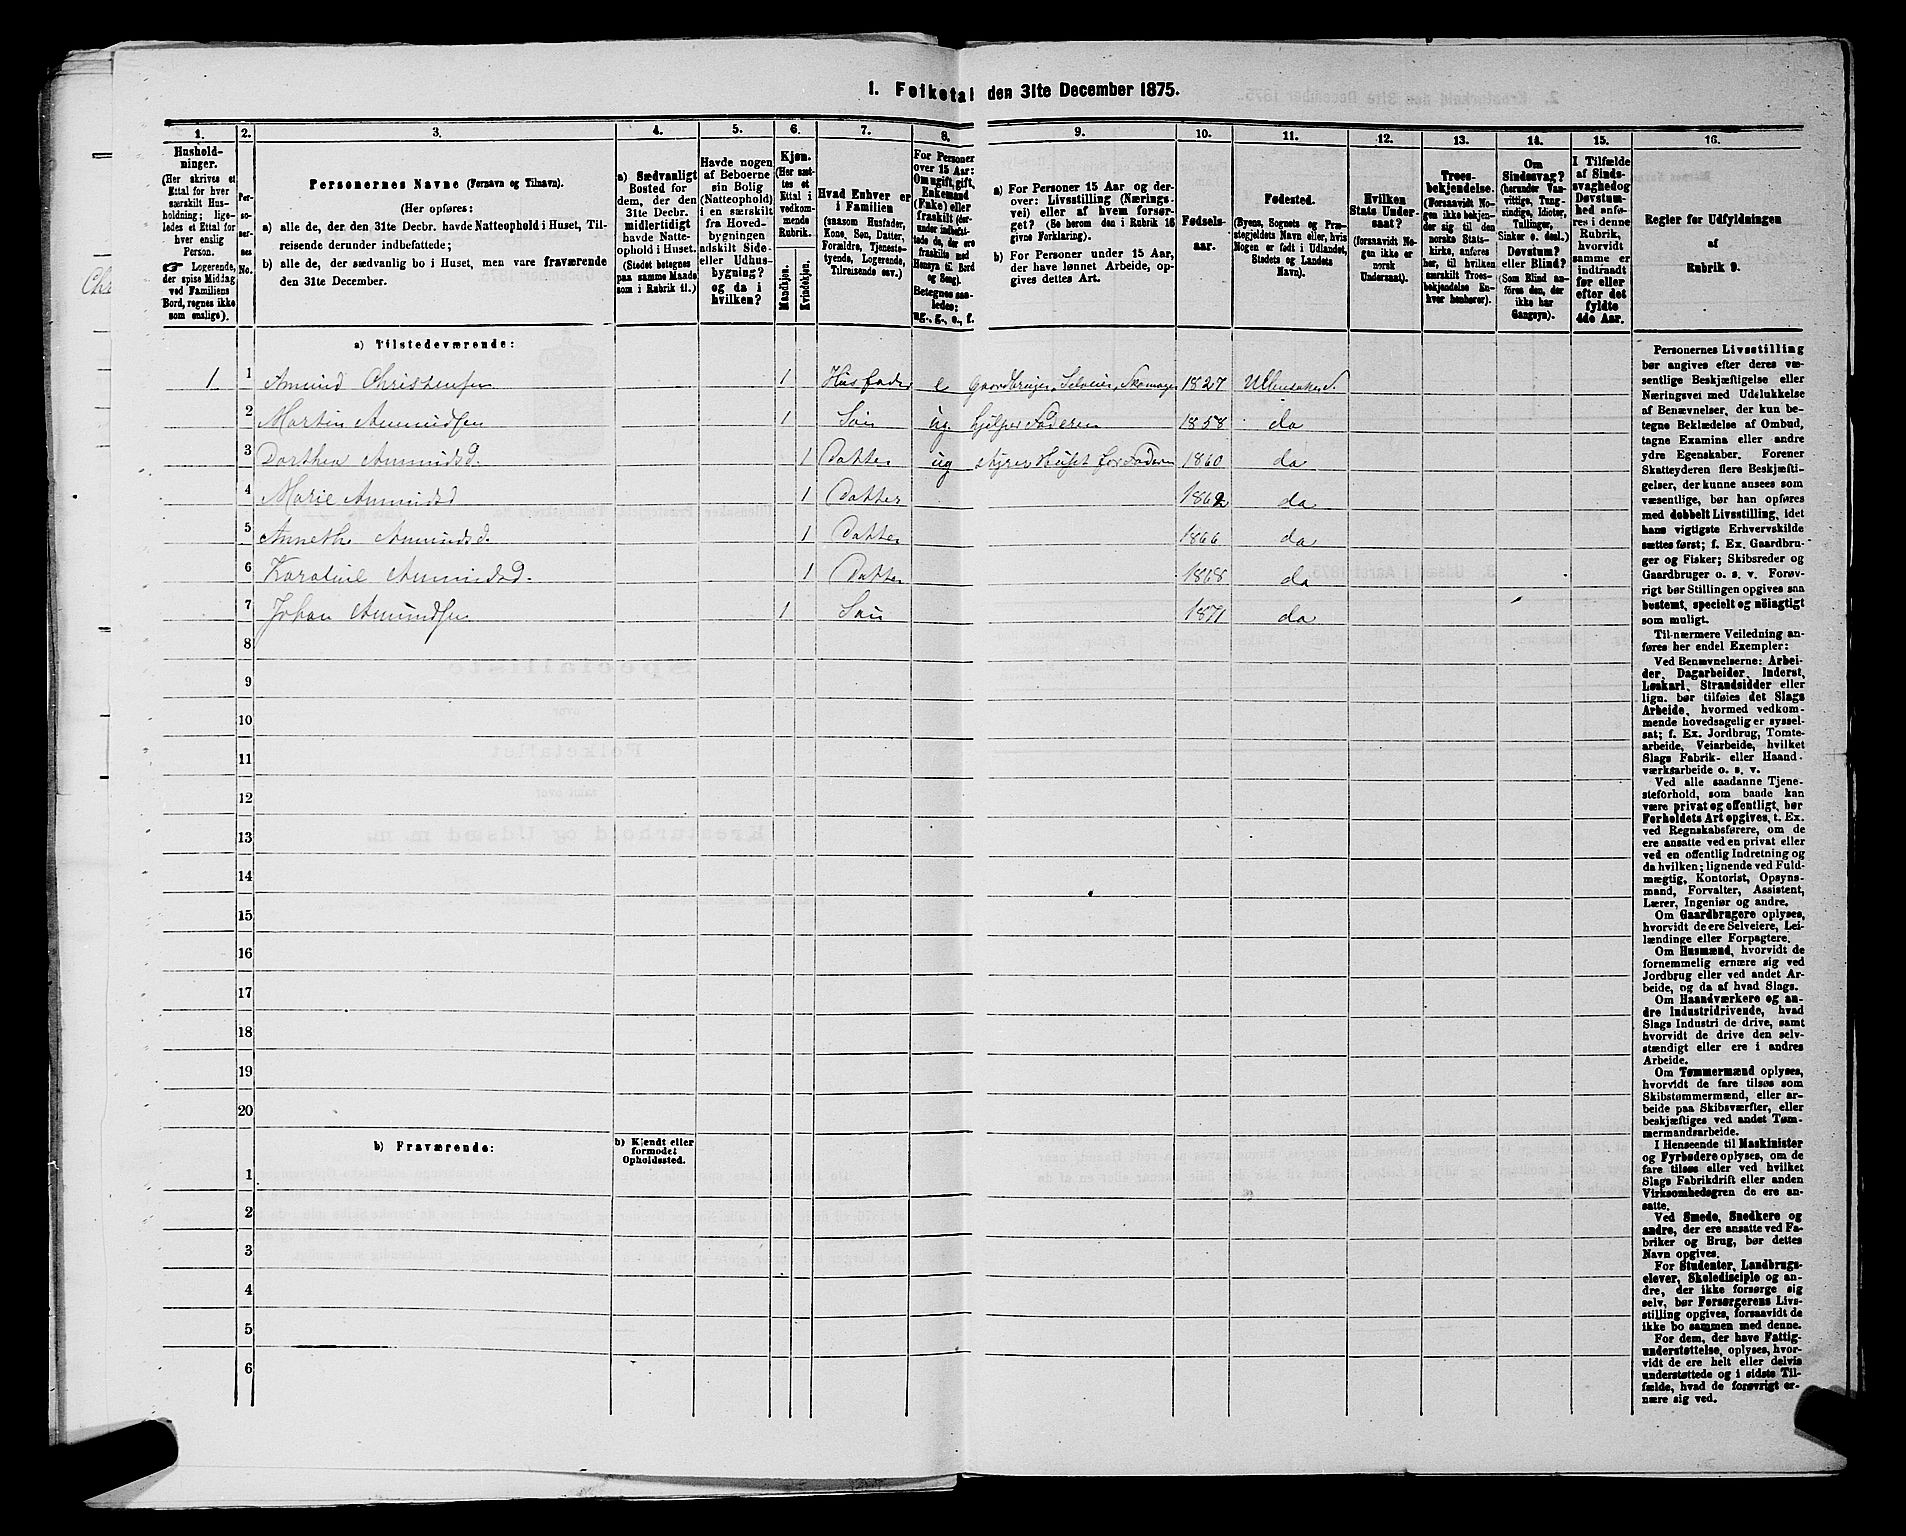 1. Folketal den 31te December 1875.
1.
2.
3.
4.
5.
6.
7.
8.
9.
10.
11.
12.
13.
14.
15.
16.
Husholdninger.
(Her skrives et
Ettal for hver
særskilt Husholdning;
ligeledes et Ettal for
hver enslig
Person.
☞ Logerende,
der spise Middag
ved Familiens
Bord, regnes ikke
som enslige).
Personernes No.
Personernes Navne (Fornavn og Tilnavn).
(Her opføres:
a) alle de, der den 31te Decbr. havde Natteophold i Huset, Tilreisende derunder indbefattede;
b) alle de, der sædvanlig bo i Huset, men vare fraværende
den 31te December.
a) Sædvanligt
Bosted for
dem, der den
31te Decbr.
midlertidigt
havde Natteophold i Huset.
(Stedet betegnes
paa samme Maade
som i Rubrik 11.)
Havde nogen
af Beboerne
sin Bolig
(Natteophold)
i en særskilt
fra Hovedbygningen
adskilt Side-
eller Udhusbygning?
og da i
hvilken?
Kjøn.
(Her sættes et
Ettal i
vedkommende
Rubrik.
Mandkjøn.
Kvindekjøn.
Hvad Enhver er
i Familien
(saasom Husfader,
Kone, Søn, Datter,
Forældre, Tjenestetyende, Logerende,
Tilreisende osv.)
For Personer
over 15 Aar:
Om ugift, gift,
Enkemand
(Enke) eller
fraskilt (derunder indbefattede de, der ere
fraskilte med
Hensyn til Bord
og Seng).
Betegnes saaledes:
ug., g., e., f.
a) For Personer 15 Aar og derover: Livsstilling (Næringsvei) eller af hvem forsørget? (Se herom den i Rubrik 16
givne Forklaring).
b) For Personer under 15 Aar,
der have lønnet Arbeide, opgives dettes Art.
Fødselsaar.
Fødested.
(Byens, Sognets og Præstegjeldets Navn eller, hvis
Nogen er født i Udlandet,
Stedets og Landets
Navn).
Hvilken
Stats Undersaat?
(forsaavidt Nogen ikke er
norsk
Undersaat).
Troesbekjendelse.
(Forsaavidt Nogen ikke bekjender sig til den
norske Statskirke, anføres
her, til hvilken
særskilt Troesbekjendelse Enhver henhører).
Om
Sindssvag?
(herunder Vanvittige, Tungsindige, Idioter,
Tullinger,
Sinker o. desl.)
Døvstum?
eller Blind?
(Som Blind anføres den, der
ikke har
Gangsyn).
I Tilfælde
af Sindssvaghed og
Døvstumhed anføres i denne
Rubrik,
hvorvidt
samme er
indtraadt
før eller
efter det
fyldte
4de Aar.
Regler for Udfyldningen
af
Rubrik 9.
a) Tilstedeværende:
1 1 Amund Christensen 1 Husfader e Gaardbruger, Selveier, Skomager 1827 Ullensaker S.
2 Martin Amundsen 1 Søn ug. hjælper Faderen 1858 do
3 Dorthea Amundsd. 1 Datter ug styrer Huset for Faderen 1860 do
4 Marie Amundsd 1 Datter 1862 do
5 Anneth Amundsd. 1 Datter 1866 do
6 Karoline Amundsd. 1 Datter 1868 do
7 Johan Amundsen 1 Søn 1871 do
8
9
10
11
12
13
14
15
16
17
18
19
20
b) Fraværende:
b) Kjendt eller
formodet
Opholdssted.
1
2
3
4
5
6
Personernes Livsstilling
bør angives efter deres væsentlige Beskjæftigelse eller
Næringsvei med Udelukkelse
af Benævnelser, der kun betegne Beklædelse af Ombud,
tagne Examina eller andre
ydre Egenskaber. Forener
Skatteyderen flere Beskjæftigelser, der kunne ansees som
væsentlige, bør han opføres
med dobbelt Livsstilling, idet
hans vigtigste Erhvervskilde
sættes først; f. Ex. Gaardbruger og Fisker; Skibsreder og
Gaardbruger o. s. v. Forøvrigt bør Stillingen opgives saa
bestemt, specielt og nöiagtigt
som muligt.
Til nærmere Veiledning anføres her endel Exempler:
Ved Benævnelserne: Arbeider, Dagarbeider, Inderst,
Løskarl, Strandsidder eller
lign. bør tilføies det Slags
Arbeide, hvormed vedkommende hovedsagelig er sysselsat; f. Ex. Jordbrug, Tomtearbeide, Veiarbeide, hvilket
Slags Fabrik- eller Haandværksarbeide o. s. v.
Ved alle saadanne Tjenesteforhold, som baade kan
være privat og offentligt, bør
Forholdets Art opgives, t. Ex.
ved Regnskabsførere, om de
ere ansatte ved en privat eller
ved en offentlig Indretning og
da hvilken; lignende ved Fuldmægtig, Kontorist, Opsynsmand, Forvalter, Assistent,
Lærer, Ingeniør og andre.
Om Gaardbrugere oplyses,
hvorvidt de ere Selveiere, Leilændinge eller Forpagtere.
Om Husmænd, hvorvidt de
fornemmelig ernære sig ved
Jordbrug eller ved andet Arbeide, og da af hvad Slags.
Om Haandværkere og andre Industridrivende, hvad
Slags Industri de drive, samt
hvorvidt de drive den selvstændigt eller ere i andres
Arbeide.
Om Tømmermænd oplyses,
hvorvidt de fare tilsøs som
Skibstømmermænd, eller arbeide paa Skibsværfter, eller
beskjæftiges ved andet Tømmermandsarbeide.
I Henseende til Maskinister
og Fyrbødere oplyses, om de
fare tilsøs eller ved hvilket
Slags Fabrikdrift eller anden
Virksomhedsgren de ere ansatte.
Ved Smede, Snedkere og
andre, der ere ansatte ved Fabriker og Brug, bør dettes
Navn opgives.
For Studenter, Landbrugselever, Skoledisciple og andre, der ikke forsørge sig
selv, bør Forsørgerens Livsstilling opgives, forsaavidt de
ikke bo sammen med denne.
For dem, der have Fattigunderstøttelse, oplyses, hvorvidt de ere helt eller delvis
understøttede og i sidste Tilfælde, hvad de forøvrigt ernære sig ved.